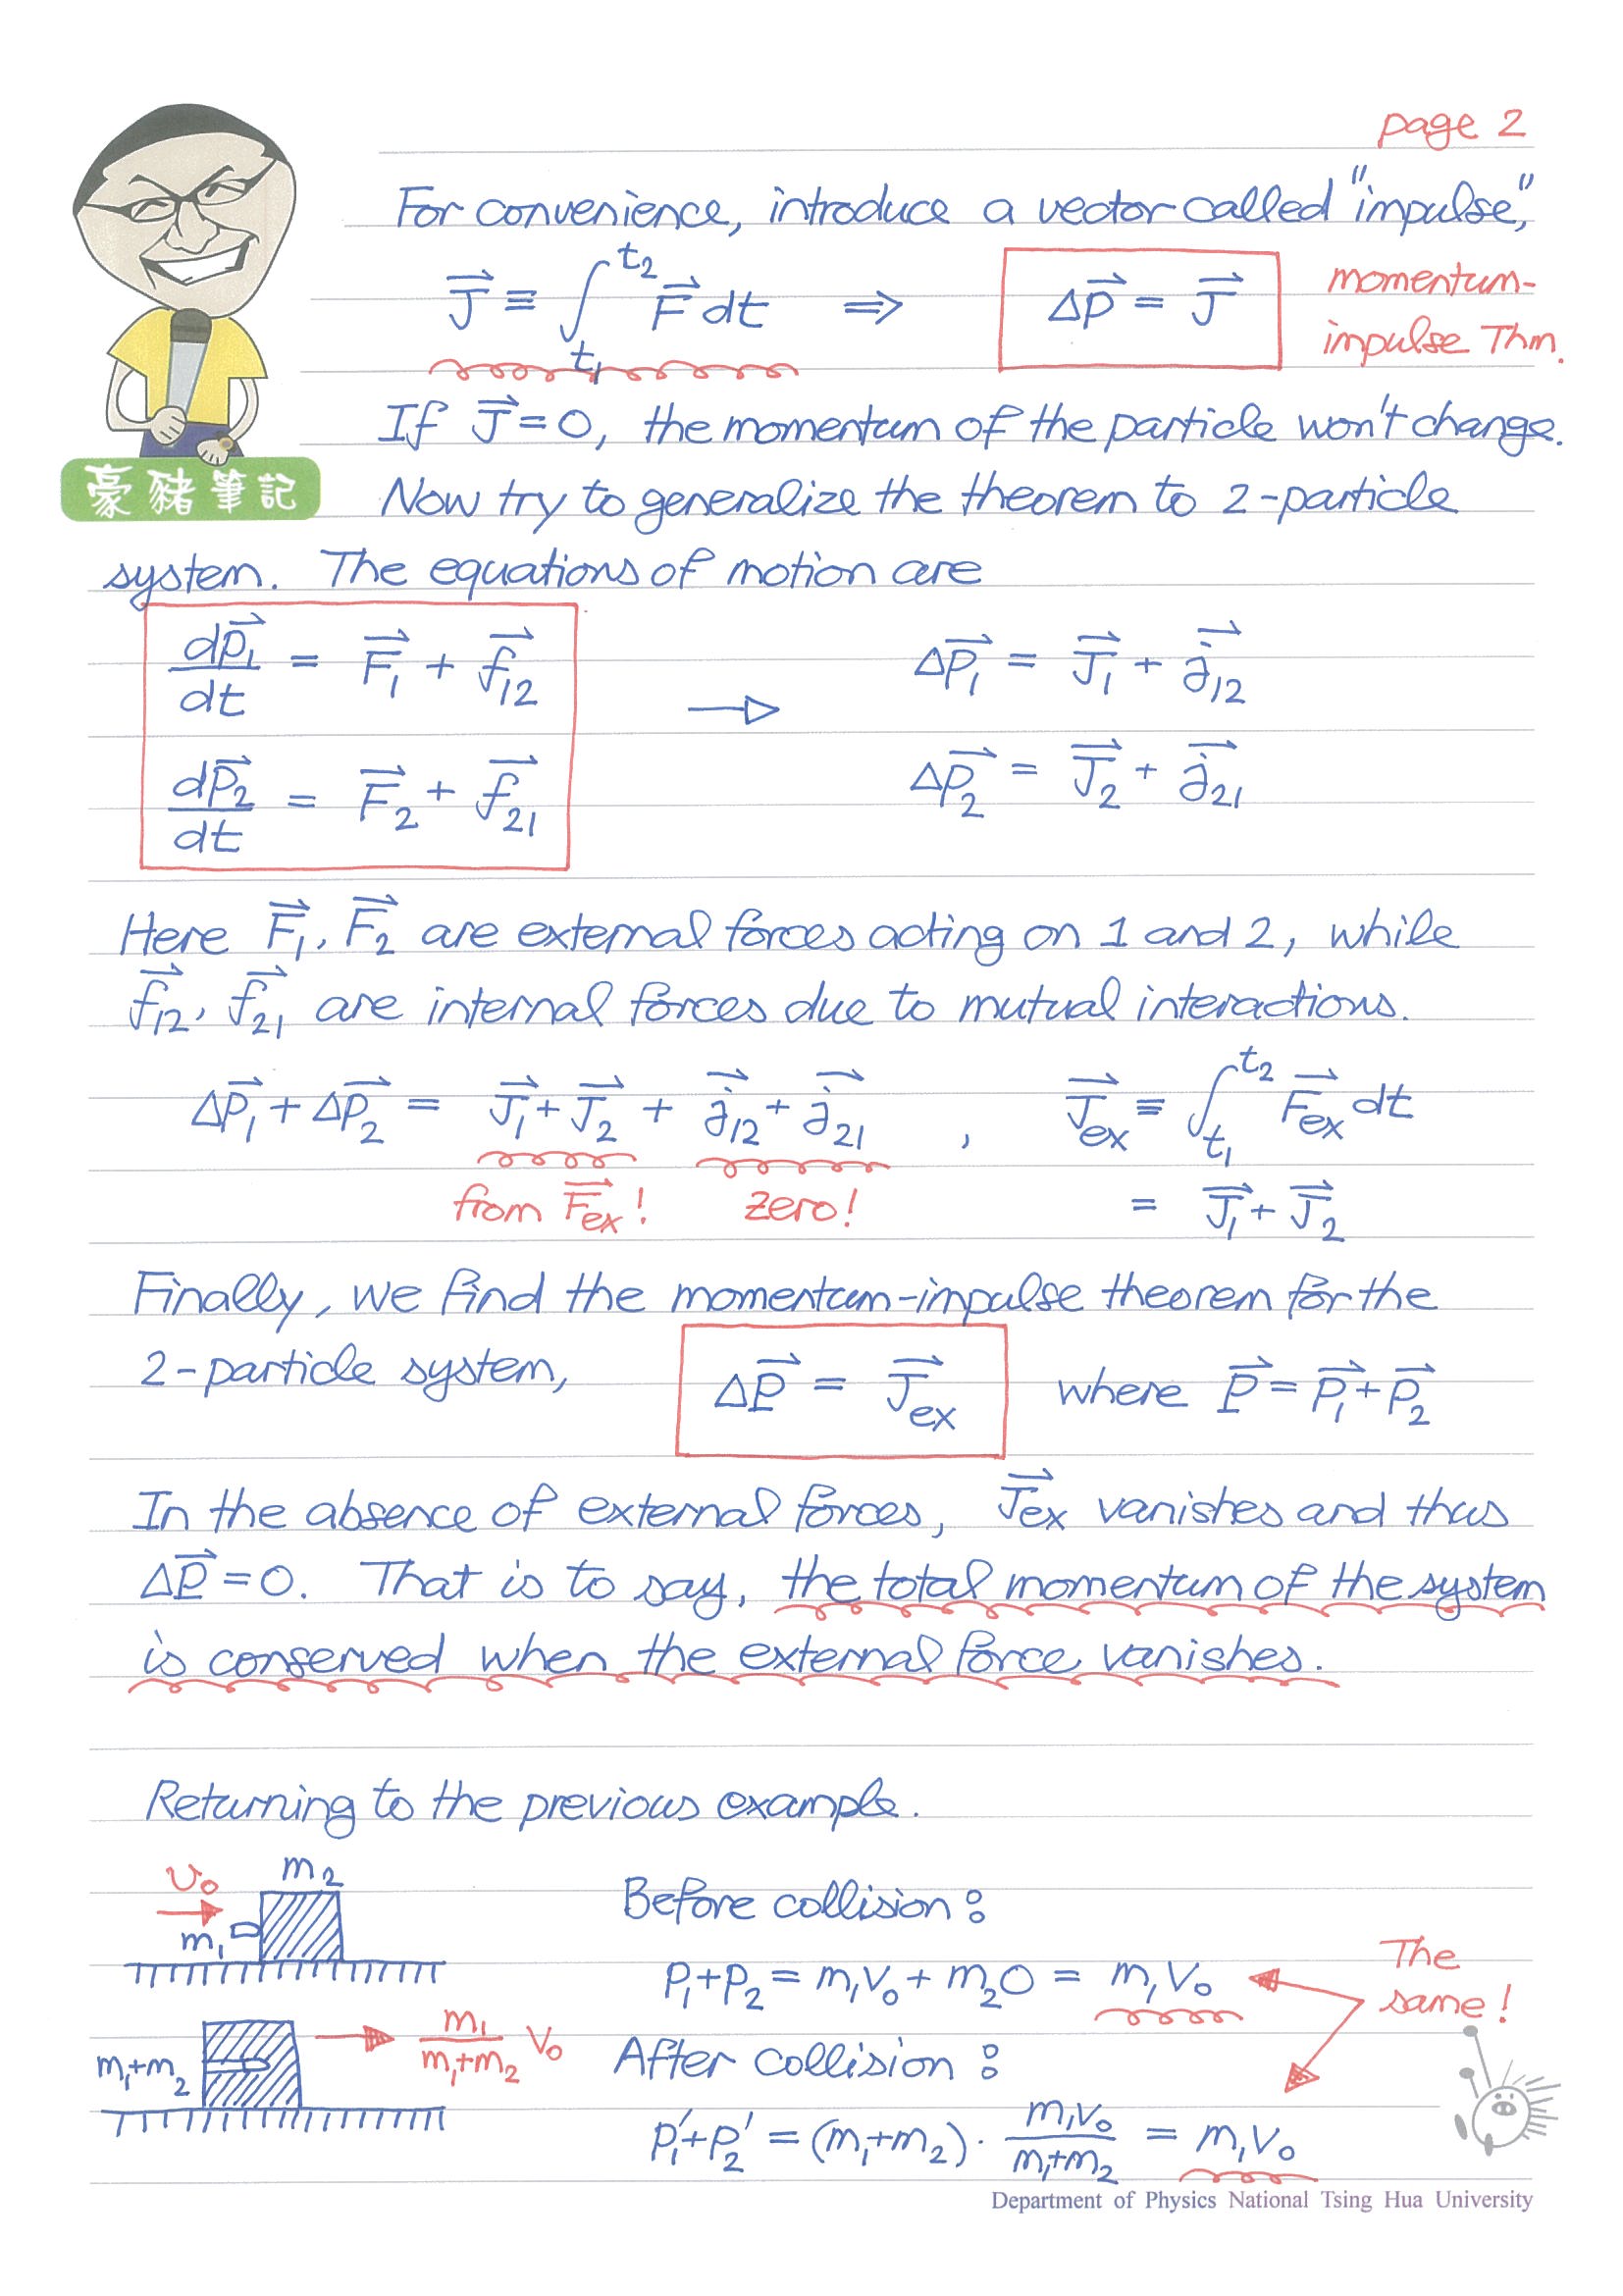 page 2
For convenience, introduce a vector called "impulse,"
J⃗ ≡ ∫_{t₁}^{t₂} F⃗ dt ⇒ Δp⃗ = J⃗ momentum-
impulse Thm.
If J⃗ = 0, the momentum of the particle won't change.
豪豬筆記
Now try to generalize the theorem to 2-particle
system. The equations of motion are
dp⃗₁/dt = F⃗₁ + f⃗₁₂ → Δp⃗₁ = J⃗₁ + j⃗₁₂
dp⃗₂/dt = F⃗₂ + f⃗₂₁ Δp⃗₂ = J⃗₂ + j⃗₂₁
Here F⃗₁, F⃗₂ are external forces acting on 1 and 2, while
f⃗₁₂, f⃗₂₁ are internal forces due to mutual interactions.
Δp⃗₁ + Δp⃗₂ = J⃗₁ + J⃗₂ + j⃗₁₂ + j⃗₂₁ , J⃗ex ≡ ∫_{t₁}^{t₂} F⃗ex dt
from F⃗ex! zero! = J⃗₁ + J⃗₂
Finally, we find the momentum-impulse theorem for the
2-particle system, ΔP⃗ = J⃗ex where P⃗ = p⃗₁ + p⃗₂
In the absence of external forces, J⃗ex vanishes and thus
ΔP⃗ = 0. That is to say, the total momentum of the system
is conserved when the external force vanishes.
Returning to the previous example.
v₀ m₂
m₁
Before collision:
p₁+p₂ = m₁v₀ + m₂0 = m₁v₀
The
same!
m₁+m₂ m₁/(m₁+m₂) v₀
After collision:
p₁'+p₂' = (m₁+m₂) · m₁v₀/(m₁+m₂) = m₁v₀
Department of Physics National Tsing Hua University